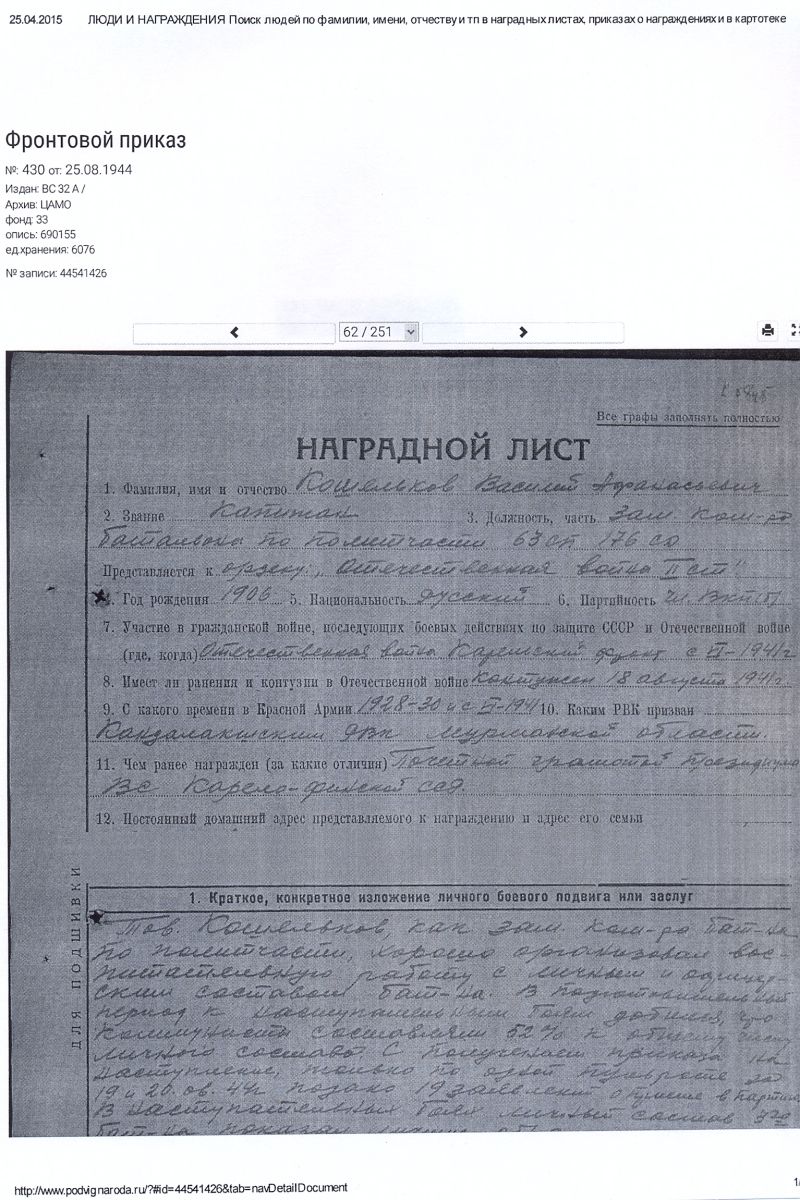 25.04.2015 ЛЮДИ И НАГРАЖДЕНИЯ Поиск людей по фамилии, имени, отчеству и тп в наградных листах, приказах о награждениях и в картотеке
Фронтовой приказ
№: 430 от: 25.08.1944
Издан: ВС 32 А /
Архив: ЦАМО
фонд: 33
опись: 690155
ед.хранения: 6076
№ записи: 44541426
62 / 251
Все графы заполнять полностью
НАГРАДНОЙ ЛИСТ
1. Фамилия, имя и отчество Кошельков Василий Афанасьевич
2. Звание Капитан 3. Должность, часть Зам ком-ра
батальона по политчасти 63 сп 176 сд
Представляется к ордену „Отечественная война II ст"
4. Год рождения 1906 5. Национальность русский 6. Партийность Чл. ВКП(б)
7. Участие в гражданской войне, последующих боевых действиях по защите СССР и Отечественной войне
(где, когда) Отечественная война Карельский фронт с VI-1941 г
8. Имеет ли ранения и контузии в Отечественной войне Контужен 18 августа 1941 г.
9. С какого времени в Красной Армии 1928-30 и с VI-1941 10. Каким РВК призван
Кандалакшским РВК Мурманской области.
11. Чем ранее награжден (за какие отличия) Почетной грамотой Президиума
ВС Карело-финской ССР.
12. Постоянный домашний адрес представляемого к награждению и адрес его семьи
ДЛЯ ПОДШИВКИ
1. Краткое, конкретное изложение личного боевого подвига или заслуг
Тов. Кошельков, как зам. ком-ра бат-на
по политчасти, хорошо организовал вос-
питательную работу с личным и офицер-
ским составом бат-на. В подготовительный
период к наступательным боям добился, что
коммунисты составляли 52% к общему числу
личного состава. С получением приказа на
наступление, только по одной пульроте за
19 и 20.06.44г подано 19 заявлений о приеме в партию
В наступательных боях личный состав
бат-на показал
http://www.podvignaroda.ru/?#id=44541426&tab=navDetailDocument